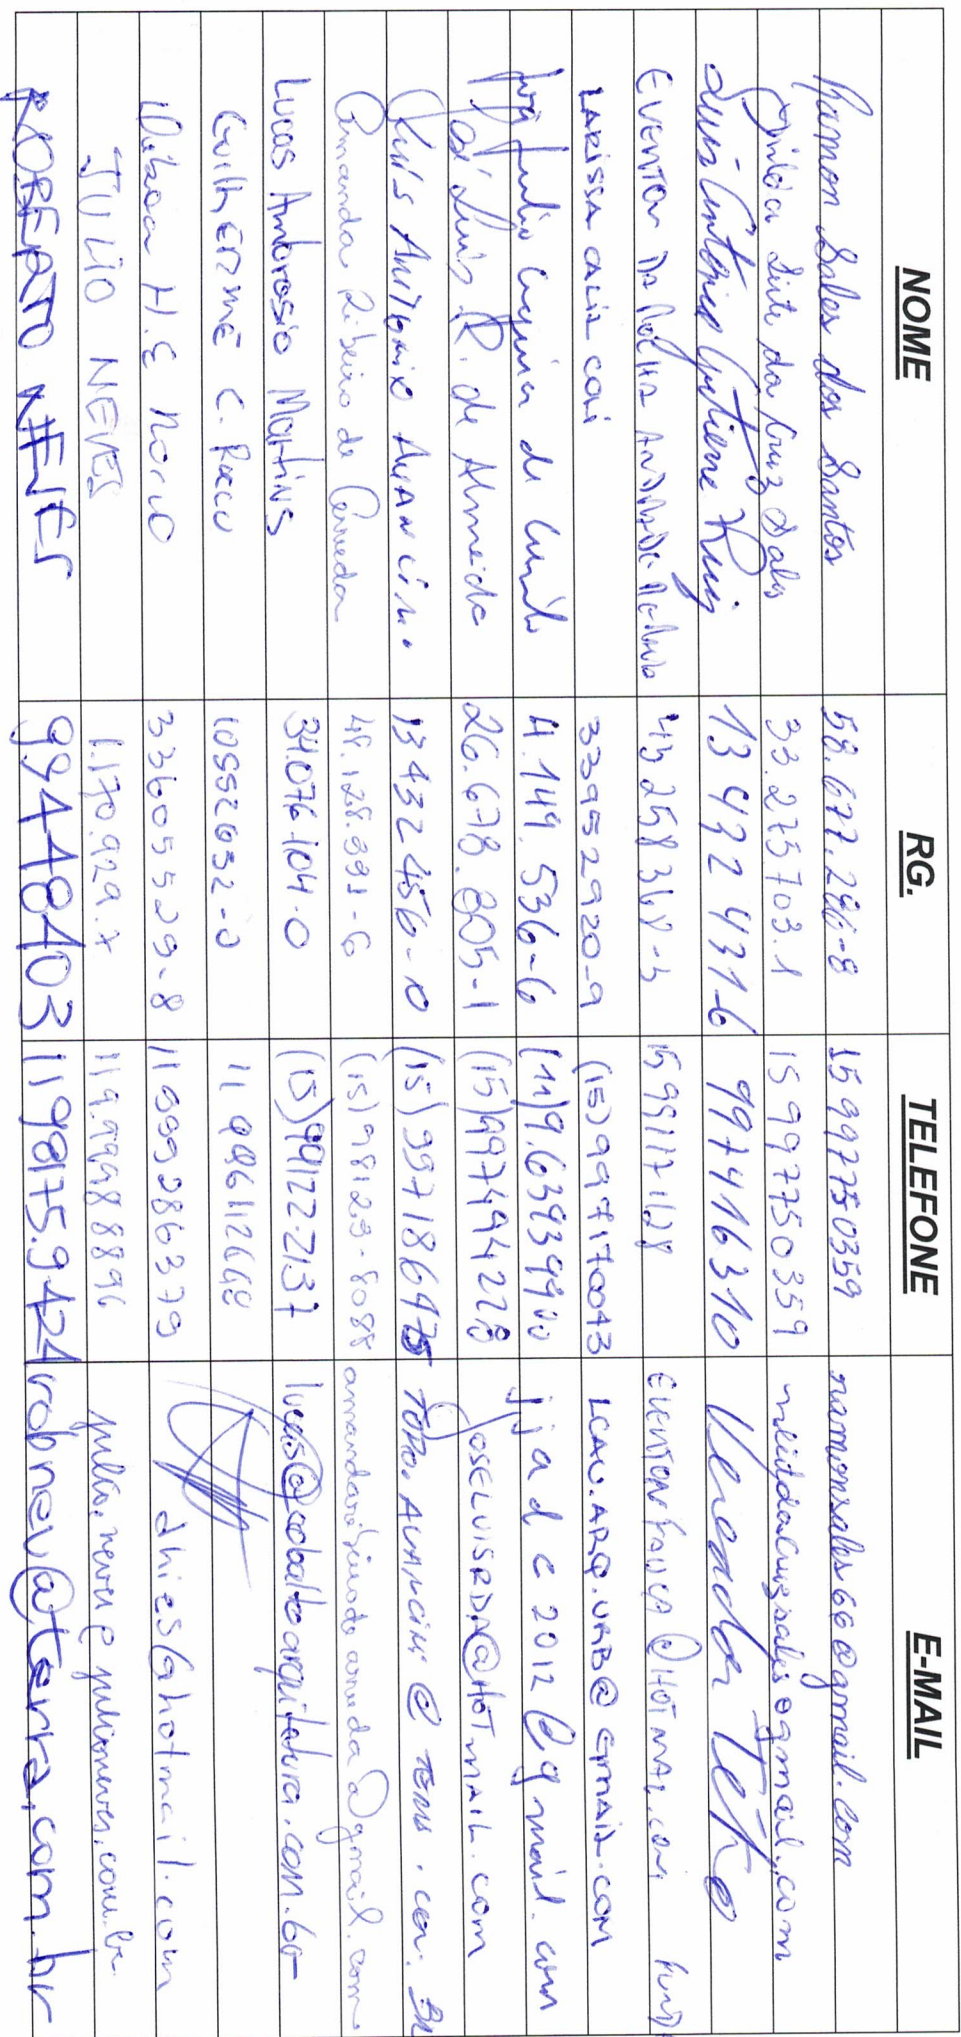 NOME RG. TELEFONE E-MAIL
Ramon Sales dos Santos 58.677.286-8 15 997750359 ramonsales66@gmail.com
Leite da Cruz Sales 33.275703.1 15 997750359
Luis Antonio Gutierre Ruiz 13 432 431-6 997416310
EVERTON DA ROCHA ANDRADE 43 258 368-3 15 99117 1128 @HOTMAIL.COM
LARISSA CAU 33952920-9 (15) 997170043 LCAU.ARQ.URB@GMAIL.COM
Julio de 4.149.536-6 (11) 9.63939900 jjadc2012@gmail.com
José Luis R. de Almeida 26.678.805-1 (15) 997494228 JOSELUISRDA@HOTMAIL.COM
Luís Antonio Avancini 13432456-0 (15) 997186475
Amanda Ribeiro de Arruda 48.128.391-6 (15) 98123-8088 amandaribeirodearruda@gmail.com
Lucas Ambrosio Martins 34.076.104-0 (15) 99122-2137 lucas@cobaltoarquitetura.com.br
GuilhERME C. 10552652-2 11 996112668
H.E 33605529-8 11 999286379 dhies@hotmail.com
JULIO NEVES 1.170.929.X 11 9.9998 8896 julio.neves@julioneves.com.br
ROBERTO NEVES 99448403 11 98175.9424 robnev@terra.com.br